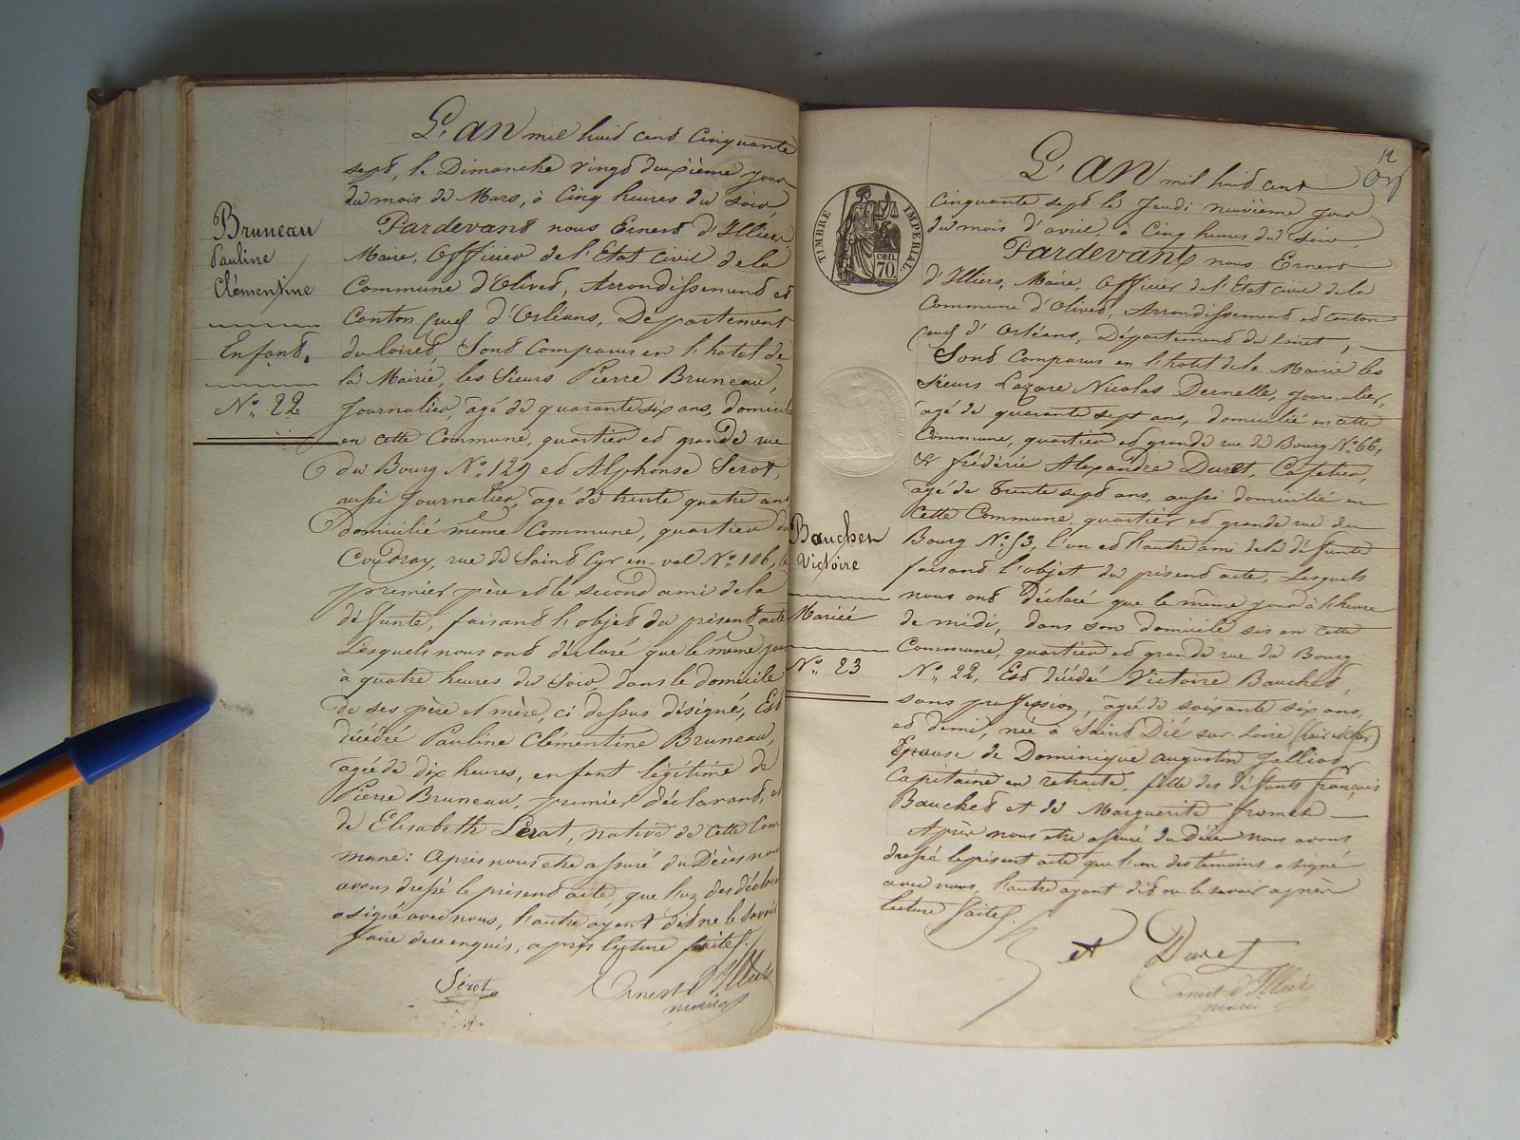 L'an mil huit cent Cinquante
sept, le Dimanche vingt deuxième jour
du mois de Mars, à Cinq heures du Soir,
Pardevant nous Ernest d'Illiers,
Maire, Officier de l'Etat Civil de la
Commune d'Olivet, Arrondissement et
Canton sud d'Orléans, Département
du Loiret, Sont Comparus en l'hotel de
la Mairie, les Sieurs Pierre Bruneau,
Journalier, agé de quarante six ans, domicilié
en cette Commune, quartier et grande rue
du Bourg No. 129 et Alphonse Serot,
aussi Journalier, agé de trente quatre ans
Domicilié même Commune, quartier du
Coudray, rue de Saint Cyr en val No. 106, le
premier père et le second ami de la
défunte, faisant l'objet du présent acte
Lesquels nous ont déclaré que le même jour
à quatre heures du Soir, dans le domicile
de ses père et mère, ci dessus désigné, Est
décédée Pauline Clémentine Bruneau,
agée de dix heures, enfant légitime de
Pierre Bruneau, premier déclarant, et
de Elisabeth Serot, native de cette Com
mune: Après nous etre assuré du Décès nous
avons dressé le présent acte, que l'un des déclarants
a signé avec nous, l'autre ayant dit ne le savoir
faire de ce enquis, après lecture faite.
Sérot
Ernest d'Illiers
maire
Bruneau
Pauline
Clémentine
Enfant.
No. 22
12
L'an mil huit cent
Cinquante sept le Jeudi neuvième jour
du mois d'avril, à Cinq heures du Soir,
Pardevant nous Ernest
d'Illiers, Maire, Officier de l'Etat civil de la
Commune d'Olivet, Arrondissement et canton
sud d'Orléans, Département du Loiret,
Sont Comparus en l'hotel de la Mairie les
Sieurs Lazare Nicolas Desnelle, journalier,
agé de quarante sept ans, domicilié en cette
Commune, quartier et grande rue du Bourg No. 66,
& frédéric Alexandre Duret, Cafetier,
agé de Trente sept ans, aussi domicilié en
cette Commune quartier et grande rue du
Bourg No. 53, l'un et l'autre ami de la défunte
faisant l'objet du présent acte, Lesquels
nous ont Déclaré que le même jour à l'heure
de midi, dans son domicile sis en cette
Commune, quartier et grande rue du Bourg
No. 22, Est décédée Victoire Bauchet,
sans profession, agée de soixante six ans,
et demi, née à Saint Dié sur Loire
Epouse de Dominique augustin
Capitaine en retraite, fille des défunts françois
Bauchet et de Marguerite fromet
Après nous etre assuré du Décès nous avons
dressé le présent acte que l'un des témoins a signé
avec nous, l'autre ayant dit ne le savoir après
lecture faite.
et Duret
Ernest d'Illiers
maire
Bauchet
Victoire
Mariée
No. 23
TIMBRE IMPERIAL
70